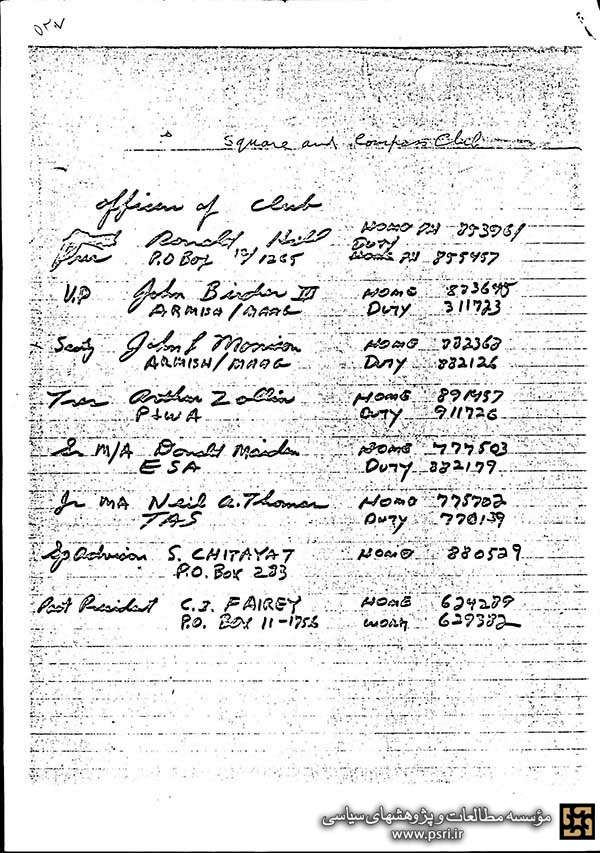 ۵۲۷
Square and Compass Club
Officers of Club
Pres Ronald Hill Home PH 853961
P.O Box 12/1265 Duty PH 855457
V.P John Birder III Home 873645
ARMISH/MAAG Duty 311723
Secty John L Morrison Home 882368
ARMISH/MAAG Duty 882126
Tres Arthur Zollin Home 891457
P+WA Duty 911726
Sr M/A Donald Maiden Home 777503
ESA Duty 882179
Jr MA Neil A. Thomas Home 775702
TAS Duty 770139
Sp Advisor S. CHITAYAT Home 880529
P.O. BOX 283
Past President C.J. FAIREY Home 624289
P.O. BOX 11-1756 Work 629382
مؤسسه مطالعات و پژوهشهای سیاسی
www.psri.ir